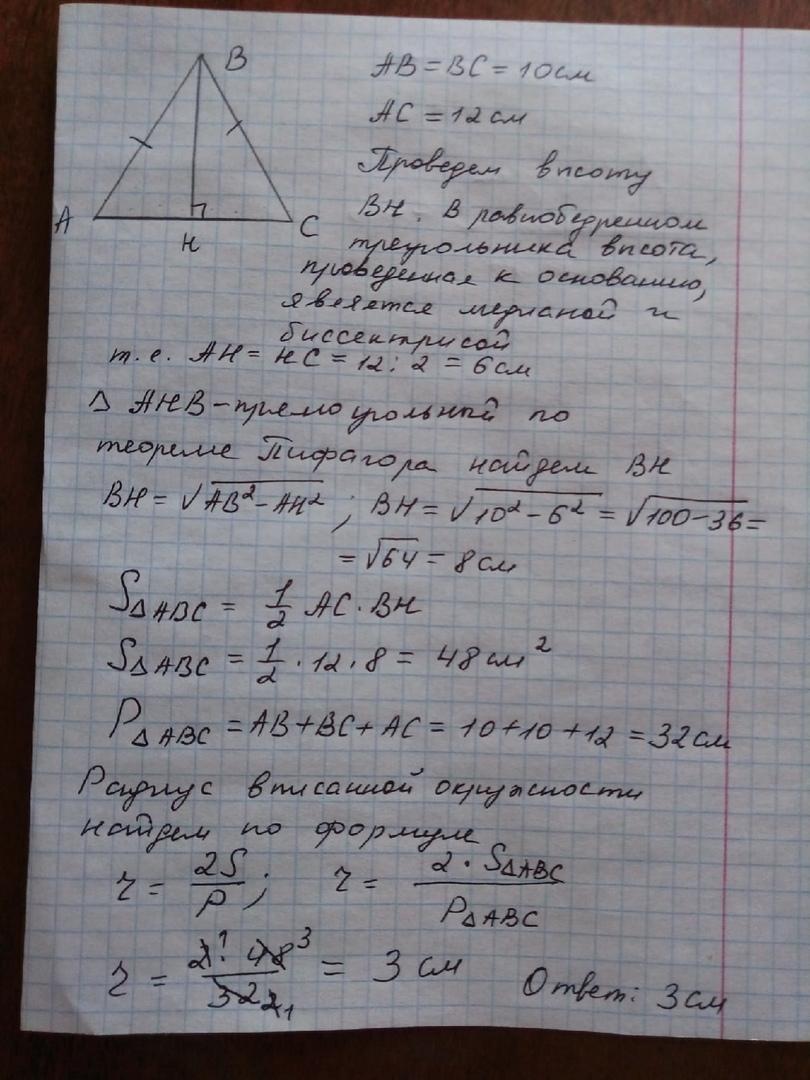 B
A
C
H
AB = BC = 10 см
AC = 12 см
Проведем высоту
BH. В равнобедренном
треугольника высота,
проведенная к основанию,
является медианой и
биссектрисой
т.е. AH = HC = 12 : 2 = 6 см
Δ AHB - прямоугольный по
теореме Пифагора найдем BH
BH = √AB² - AH² ; BH = √10² - 6² = √100 - 36 =
= √64 = 8 см
S ΔABC = 1/2 AC · BH
S ΔABC = 1/2 · 12 · 8 = 48 см²
P ΔABC = AB + BC + AC = 10 + 10 + 12 = 32 см
Радиус вписанной окружности
найдем по формуле
r = 2S/P ; r = 2 · S ΔABC / P ΔABC
r = 2 1 · 48 3 / 32 2 1 = 3 см
Ответ: 3 см